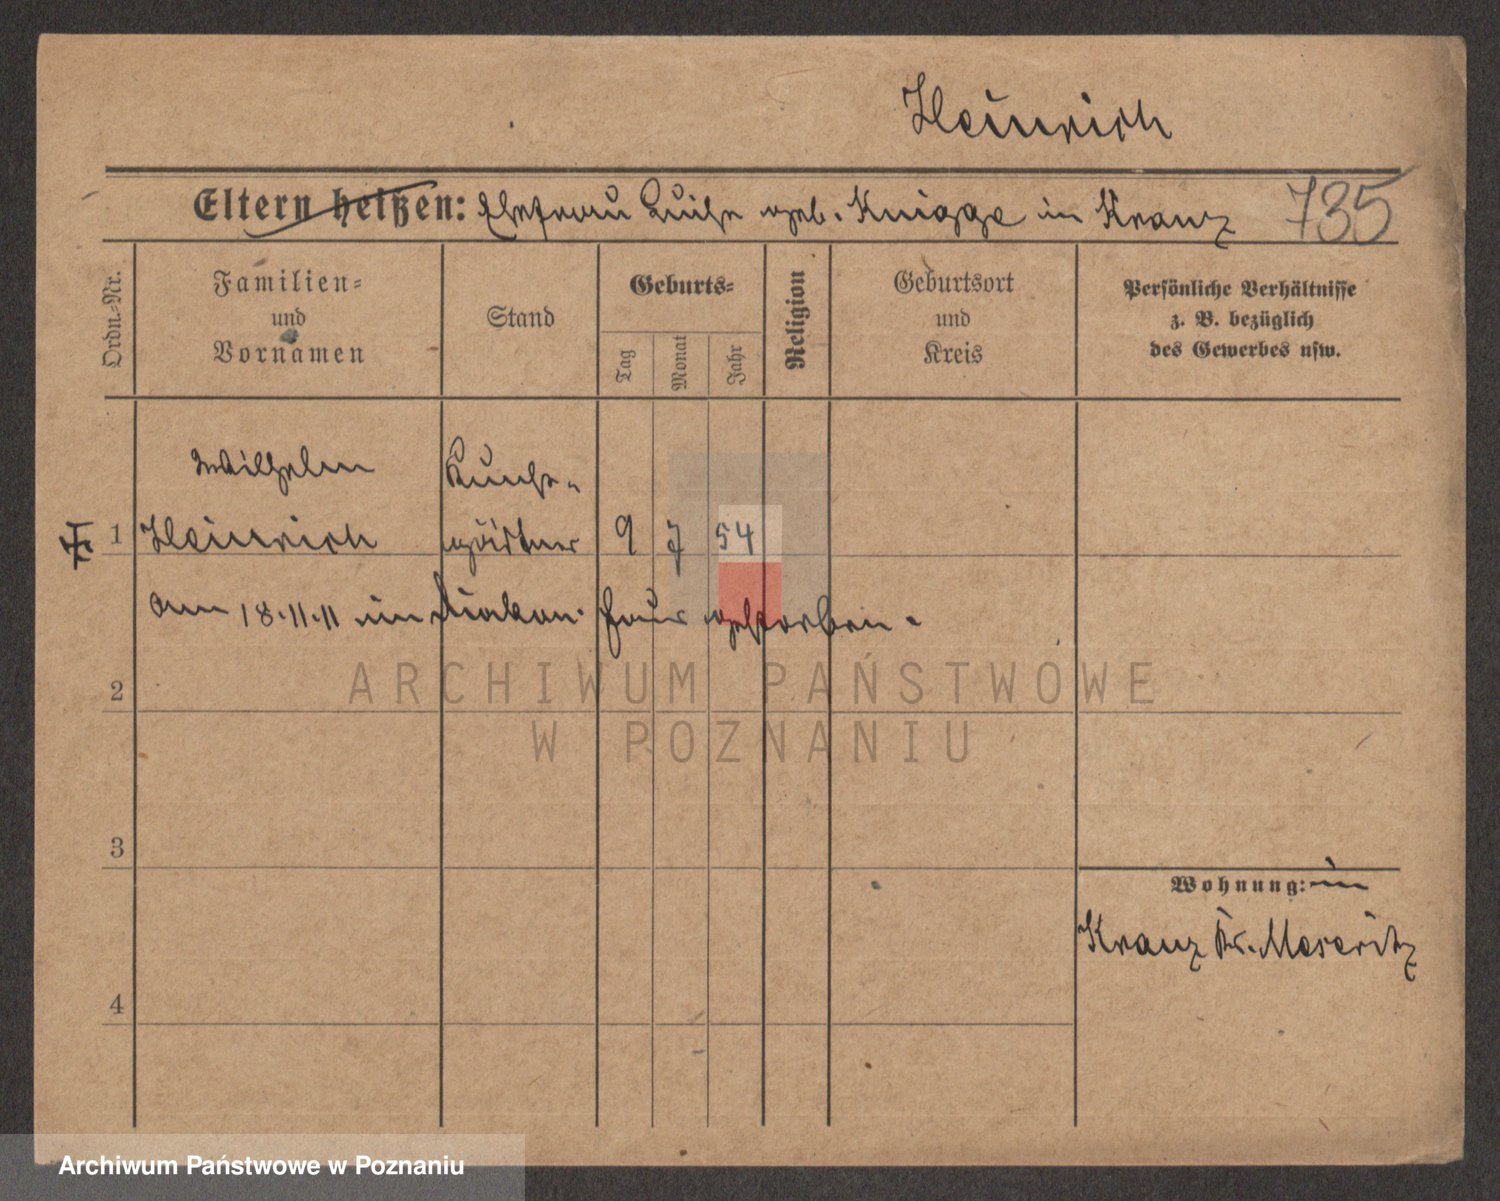 Heinrich
Eltern heißen: Ehefrau Luise geb. Knigge in Kranz 735
Ordn.-Nr.
Familien- und Vornamen
Stand
Geburts-
Tag
Monat
Jahr
Religion
Geburtsort und Kreis
Persönliche Verhältnisse
z. B. bezüglich
des Gewerbes usw.
Wilhelm Kunst-
1 Heinrich gärtner 9 7 54
am 18.11.11 im Diakon. Haus gestorben.
2
3
Wohnung: in
Kranz Kr. Meseritz
4
ARCHIWUM PAŃSTWOWE
W POZNANIU
Archiwum Państwowe w Poznaniu